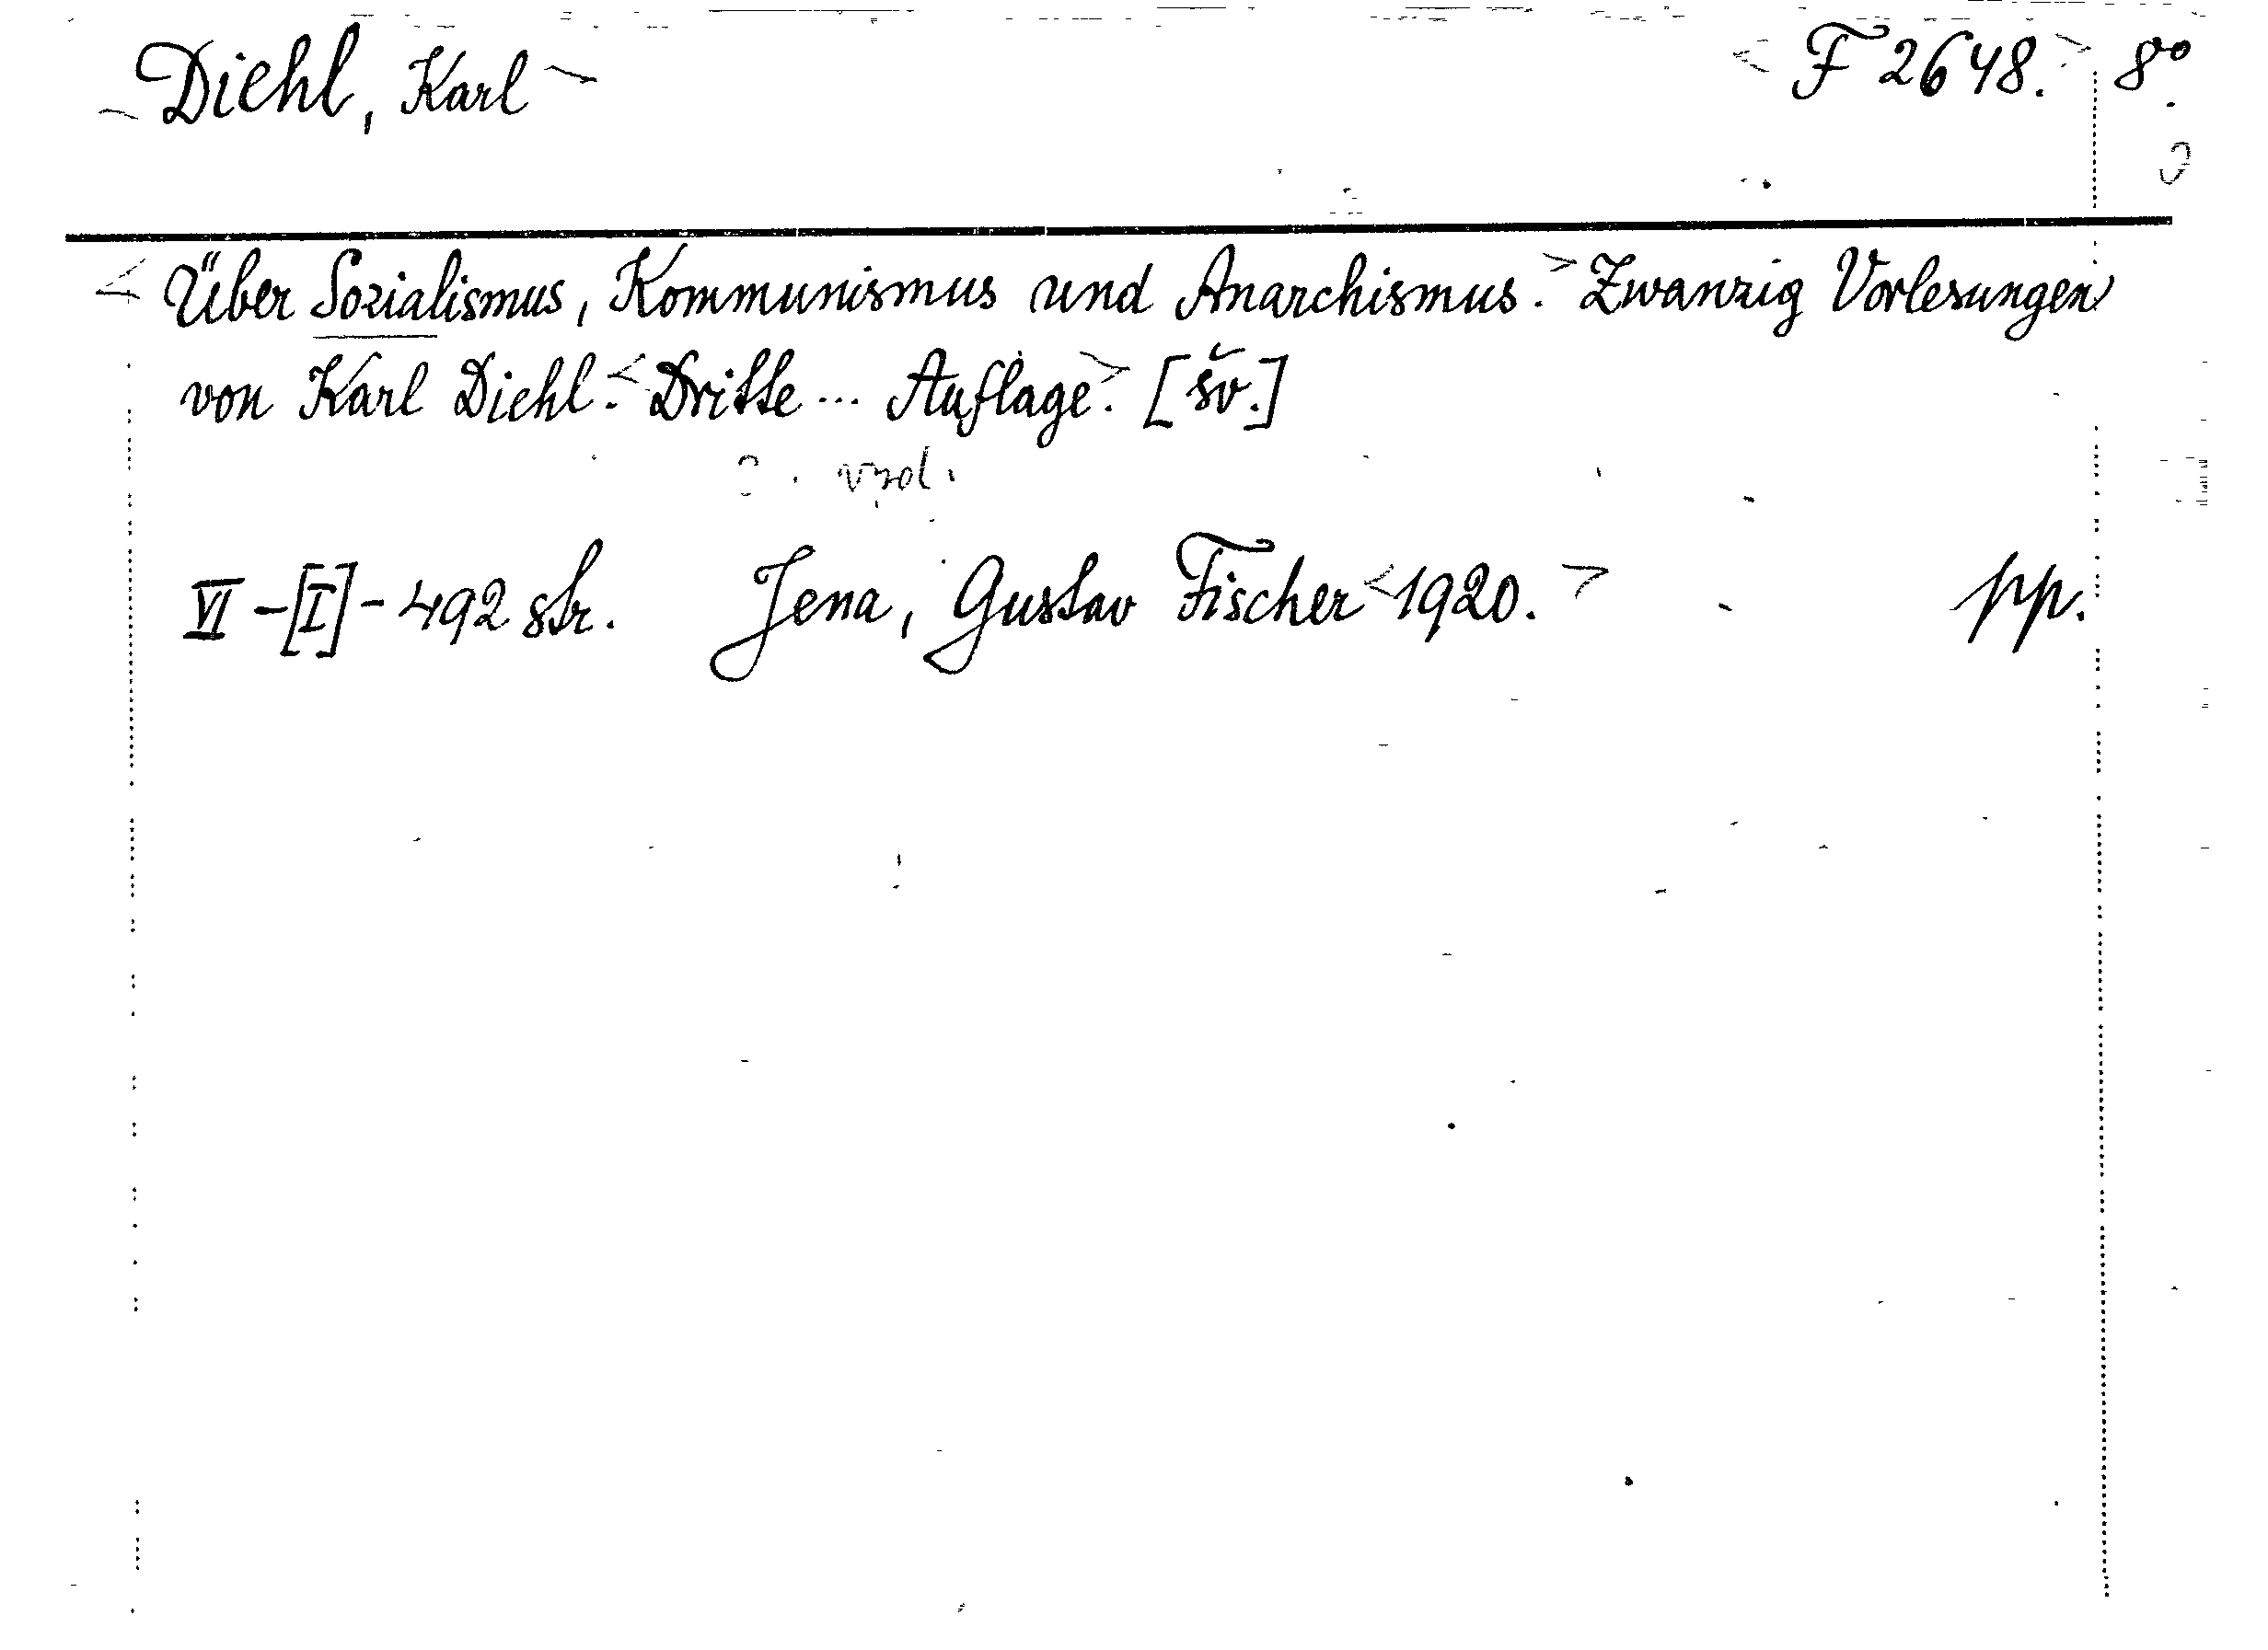 Diehl, Karl F 2648. 8°
Über Sozialismus, Kommunismus und Anarchismus. Zwanzig Vorlesungen
von Karl Diehl. Dritte ... Auflage. [šv.]
VI-[I]-492 str. Jena, Gustav Fischer 1920. pp.